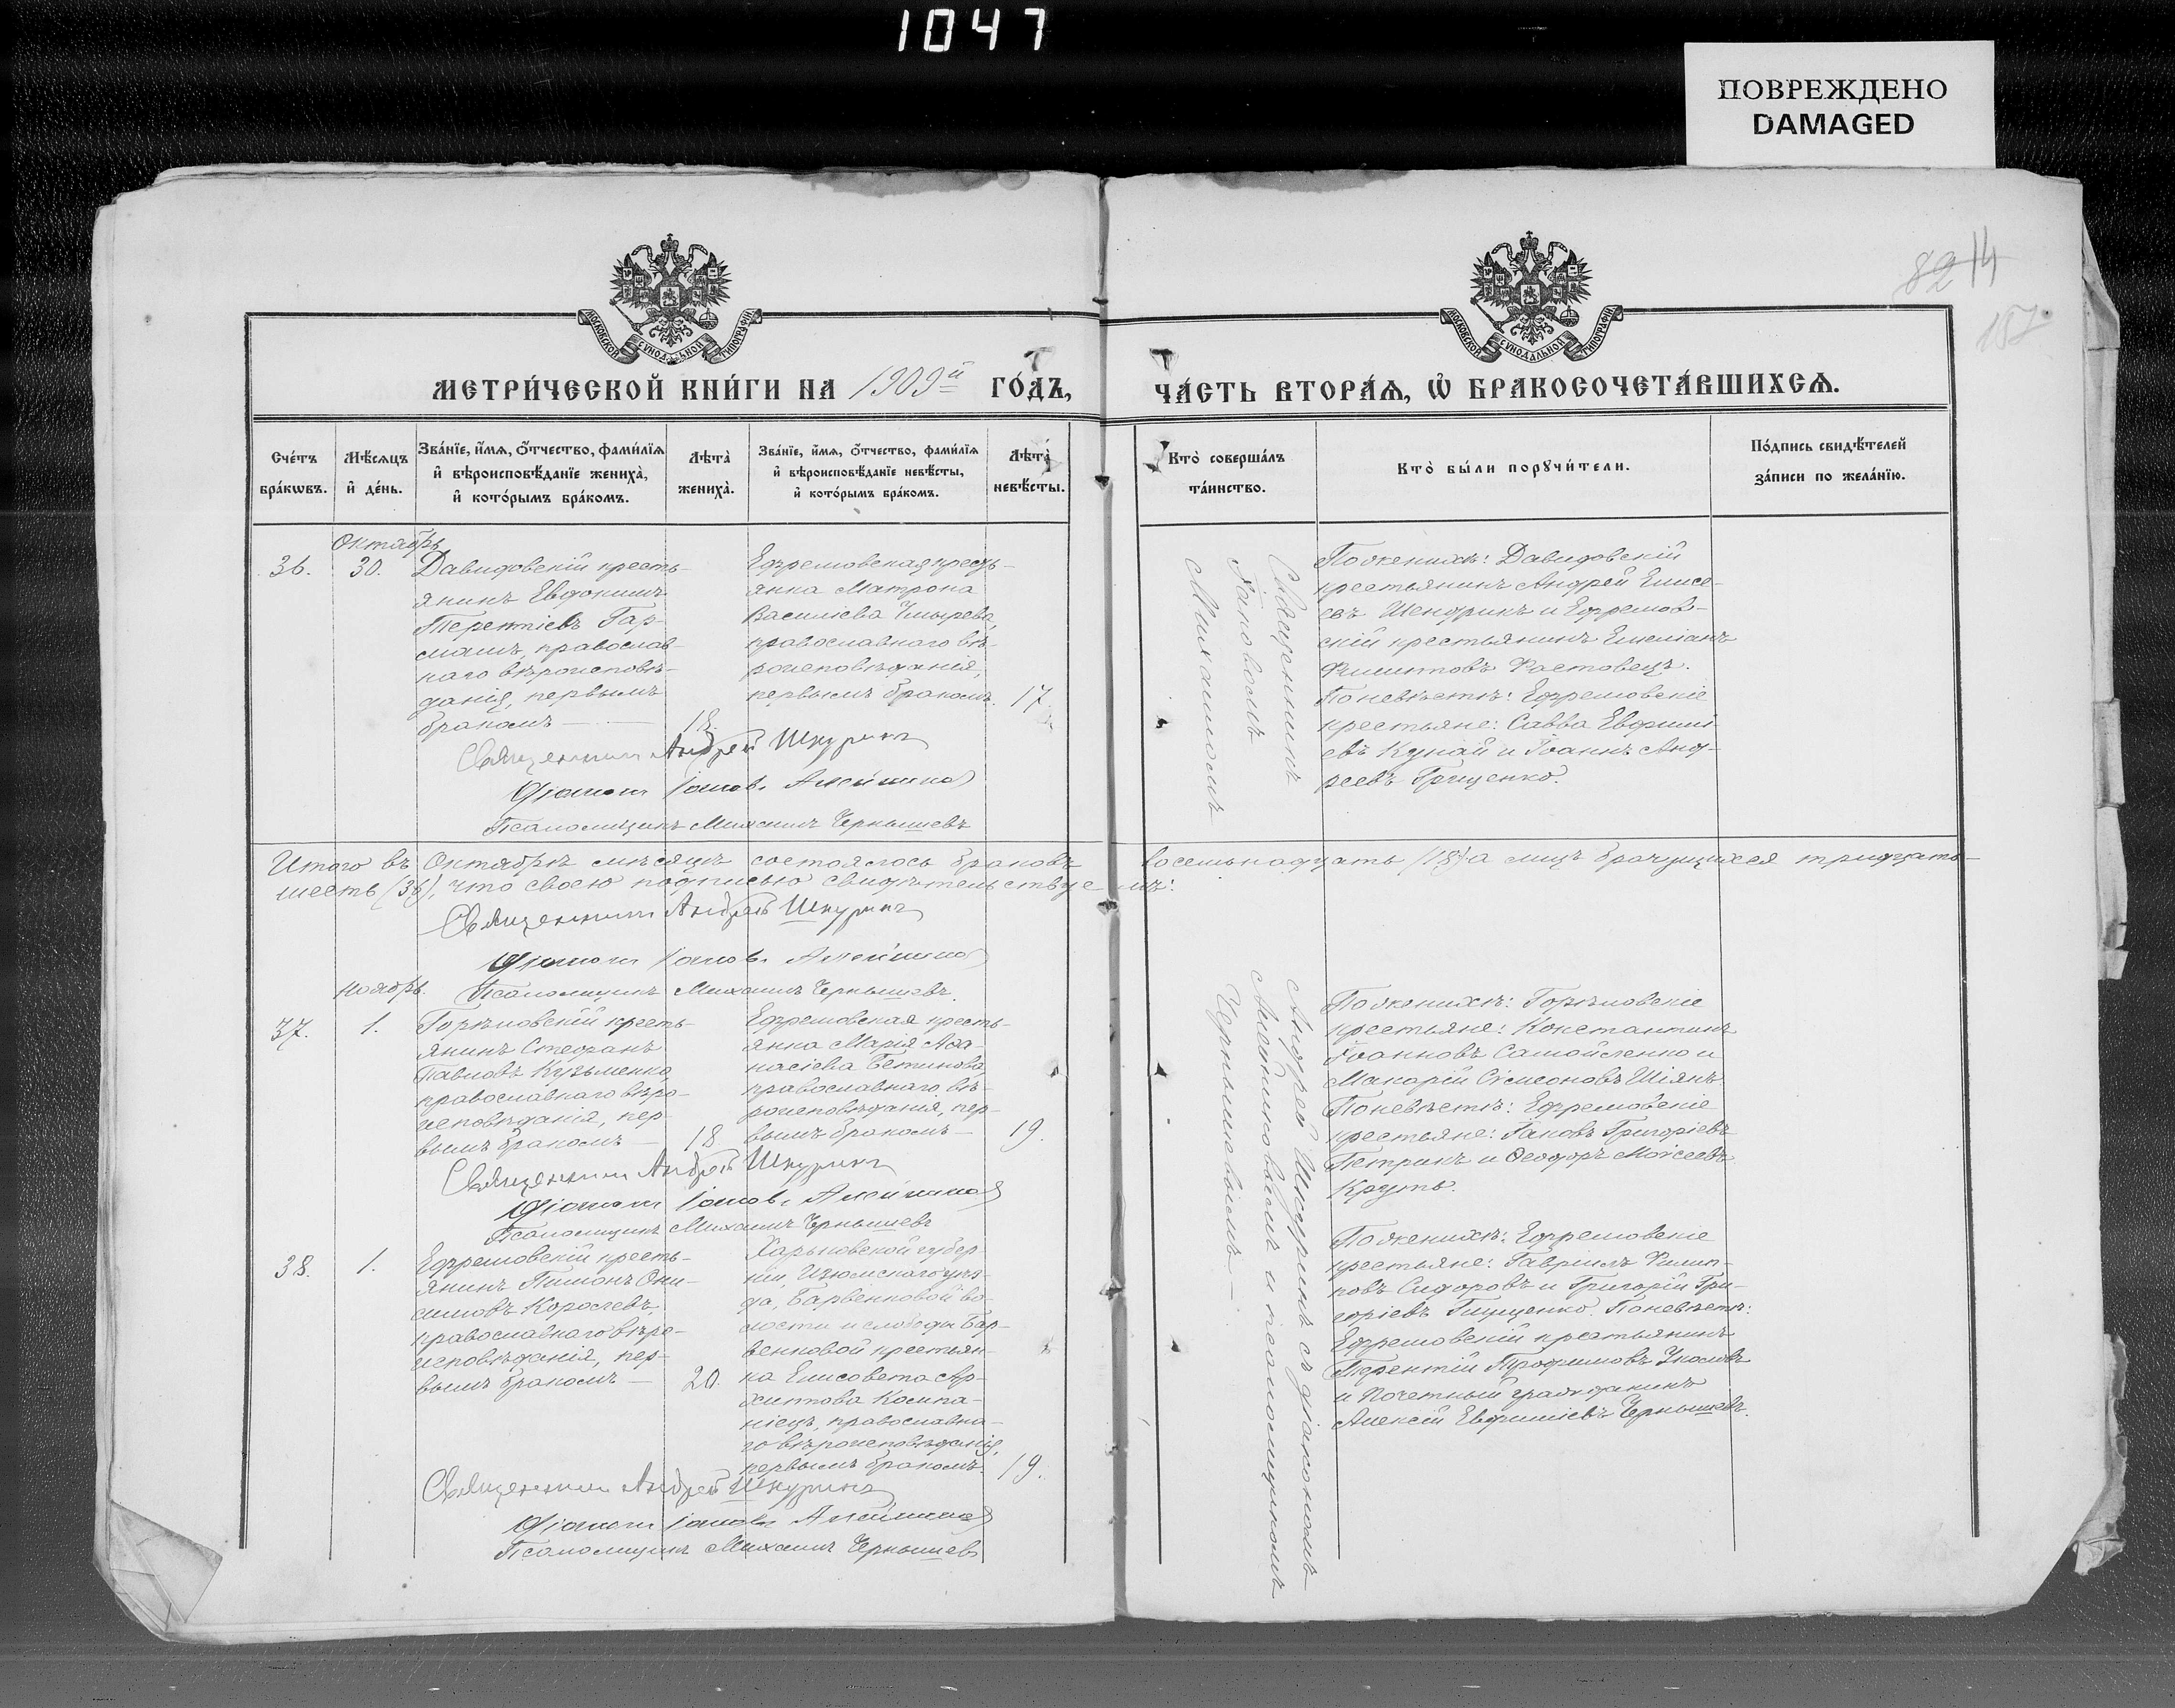 1047
ПОВРЕЖДЕНО
DAMAGED
82 14
157
МОСКОВСКОЙ СѴНОДАЛЬНОЙ ТИПОГРАФІИ
МОСКОВСКОЙ СѴНОДАЛЬНОЙ ТИПОГРАФІИ
МЕТРИ́ЧЕСКОЙ КНИ́ГИ НА 1909й ГО́ДЪ,
ЧА́СТЬ ВТОРА́Я, Ѽ БРАКОСОЧЕТА́ВШИХСЯ.
Сче́тъ
бра́кѡвъ.
Мѣ́сяцъ
и҆ де́нь.
Зва́нїе, и҆́мя, ѻ҆́тчество, фами́лїя
и҆ вѣроисповѣ́данїе жениха̀,
и҆ кото́рымъ бра́комъ.
Лѣта̀
жениха̀.
Зва́нїе, и҆́мя, ѻ҆́тчество, фами́лїя
и҆ вѣроисповѣ́данїе невѣ́сты,
и҆ кото́рымъ бра́комъ.
Лѣта̀
невѣ́сты.
Кто̀ соверша́лъ
та́инство.
Кто̀ бы́ли порꙋчи́тели.
По́дпись свидѣ́телей
за́писи по жела́нїю.
Октябрь
36.
30.
Давидовскій кресть-
янинъ Евдокимъ
Терентіевъ Гар-
машъ, православ-
наго вѣроисповѣ-
данія, первымъ
бракомъ
18.
Ефремовская кресть-
янка Матрона
Василіева Чмырева,
православнаго вѣ-
роисповѣданія,
первымъ бракомъ.
17
Священникомъ
Іаковомъ
Михаиломъ
По женихѣ: Давидовскій
крестьянинъ Андрей Елисе-
евъ Шендрикъ и Ефремов-
скій крестьянинъ Емеліанъ
Филиповъ Ростовецъ.
По невѣстѣ: Ефремовскіе
крестьяне: Савва Евфимі-
евъ Кунай и Іоаннъ Анд-
реевъ Грищенко.
Священникъ Андрей Шкуринъ
Діаконъ Іаковъ Алейниковъ
Псаломщикъ Михаилъ Чернышевъ
Итого въ Октябрѣ мѣсяцѣ состоялось браковъ восемьнадцать /18/ а лицъ брачущихся тридцать-
шесть (36), что своею подписью свидѣтельствуемъ:
Священникъ Андрей Шкуринъ
Діаконъ Іаковъ Алейниковъ
Псаломщикъ Михаилъ Чернышевъ
Ноябрь.
37.
1.
Горѣловскій кресть-
янинъ Стефанъ
Павловъ Кузьменко,
православнаго вѣро-
исповѣданія, пер-
вымъ бракомъ
18
Ефремовская кресть-
янка Марія Аѳа-
насіева Бетинова,
православнаго вѣ-
роисповѣданія, пер-
вымъ бракомъ
19.
Андрей Шкуринъ съ діакономъ
Алейниковымъ и псаломщикомъ
Чернышевымъ
По женихѣ: Горѣловскіе
крестьяне: Константинъ
Іоанновъ Самойленко и
Макарій Сѵмеоновъ Шіянъ.
По невѣстѣ: Ефремовскіе
крестьяне: Іаковъ Григоріевъ
Петрикъ и Ѳеодоръ Моисеевъ
Круть.
Священникъ Андрей Шкуринъ
Діаконъ Іаковъ Алейниковъ
Псаломщикъ Михаилъ Чернышевъ
38.
1.
Ефремовскій кресть-
янинъ Пимонъ Они-
симовъ Королевъ,
православнаго вѣро-
исповѣданія, пер-
вымъ бракомъ
20.
Харьковской губер-
ніи, Изюмскаго уѣз-
да, Барвенковой во-
лости и слободы Бар-
венковой крестьян-
ка Елисавета Ар-
хипова Компа-
ніецъ, православна-
го вѣроисповѣданія,
первымъ бракомъ.
19.
По женихѣ: Ефремовскіе
крестьяне: Гавріилъ Филип-
повъ Сидоровъ и Григорій Гри-
горіевъ Глущенко. По невѣстѣ:
Ефремовскій крестьянинъ
Терентій Трофимовъ Уколовъ
и Почетный гражданинъ
Алексій Евфиміевъ Чернышевъ.
Священникъ Андрей Шкуринъ
Діаконъ Іаковъ Алейниковъ
Псаломщикъ Михаилъ Чернышевъ